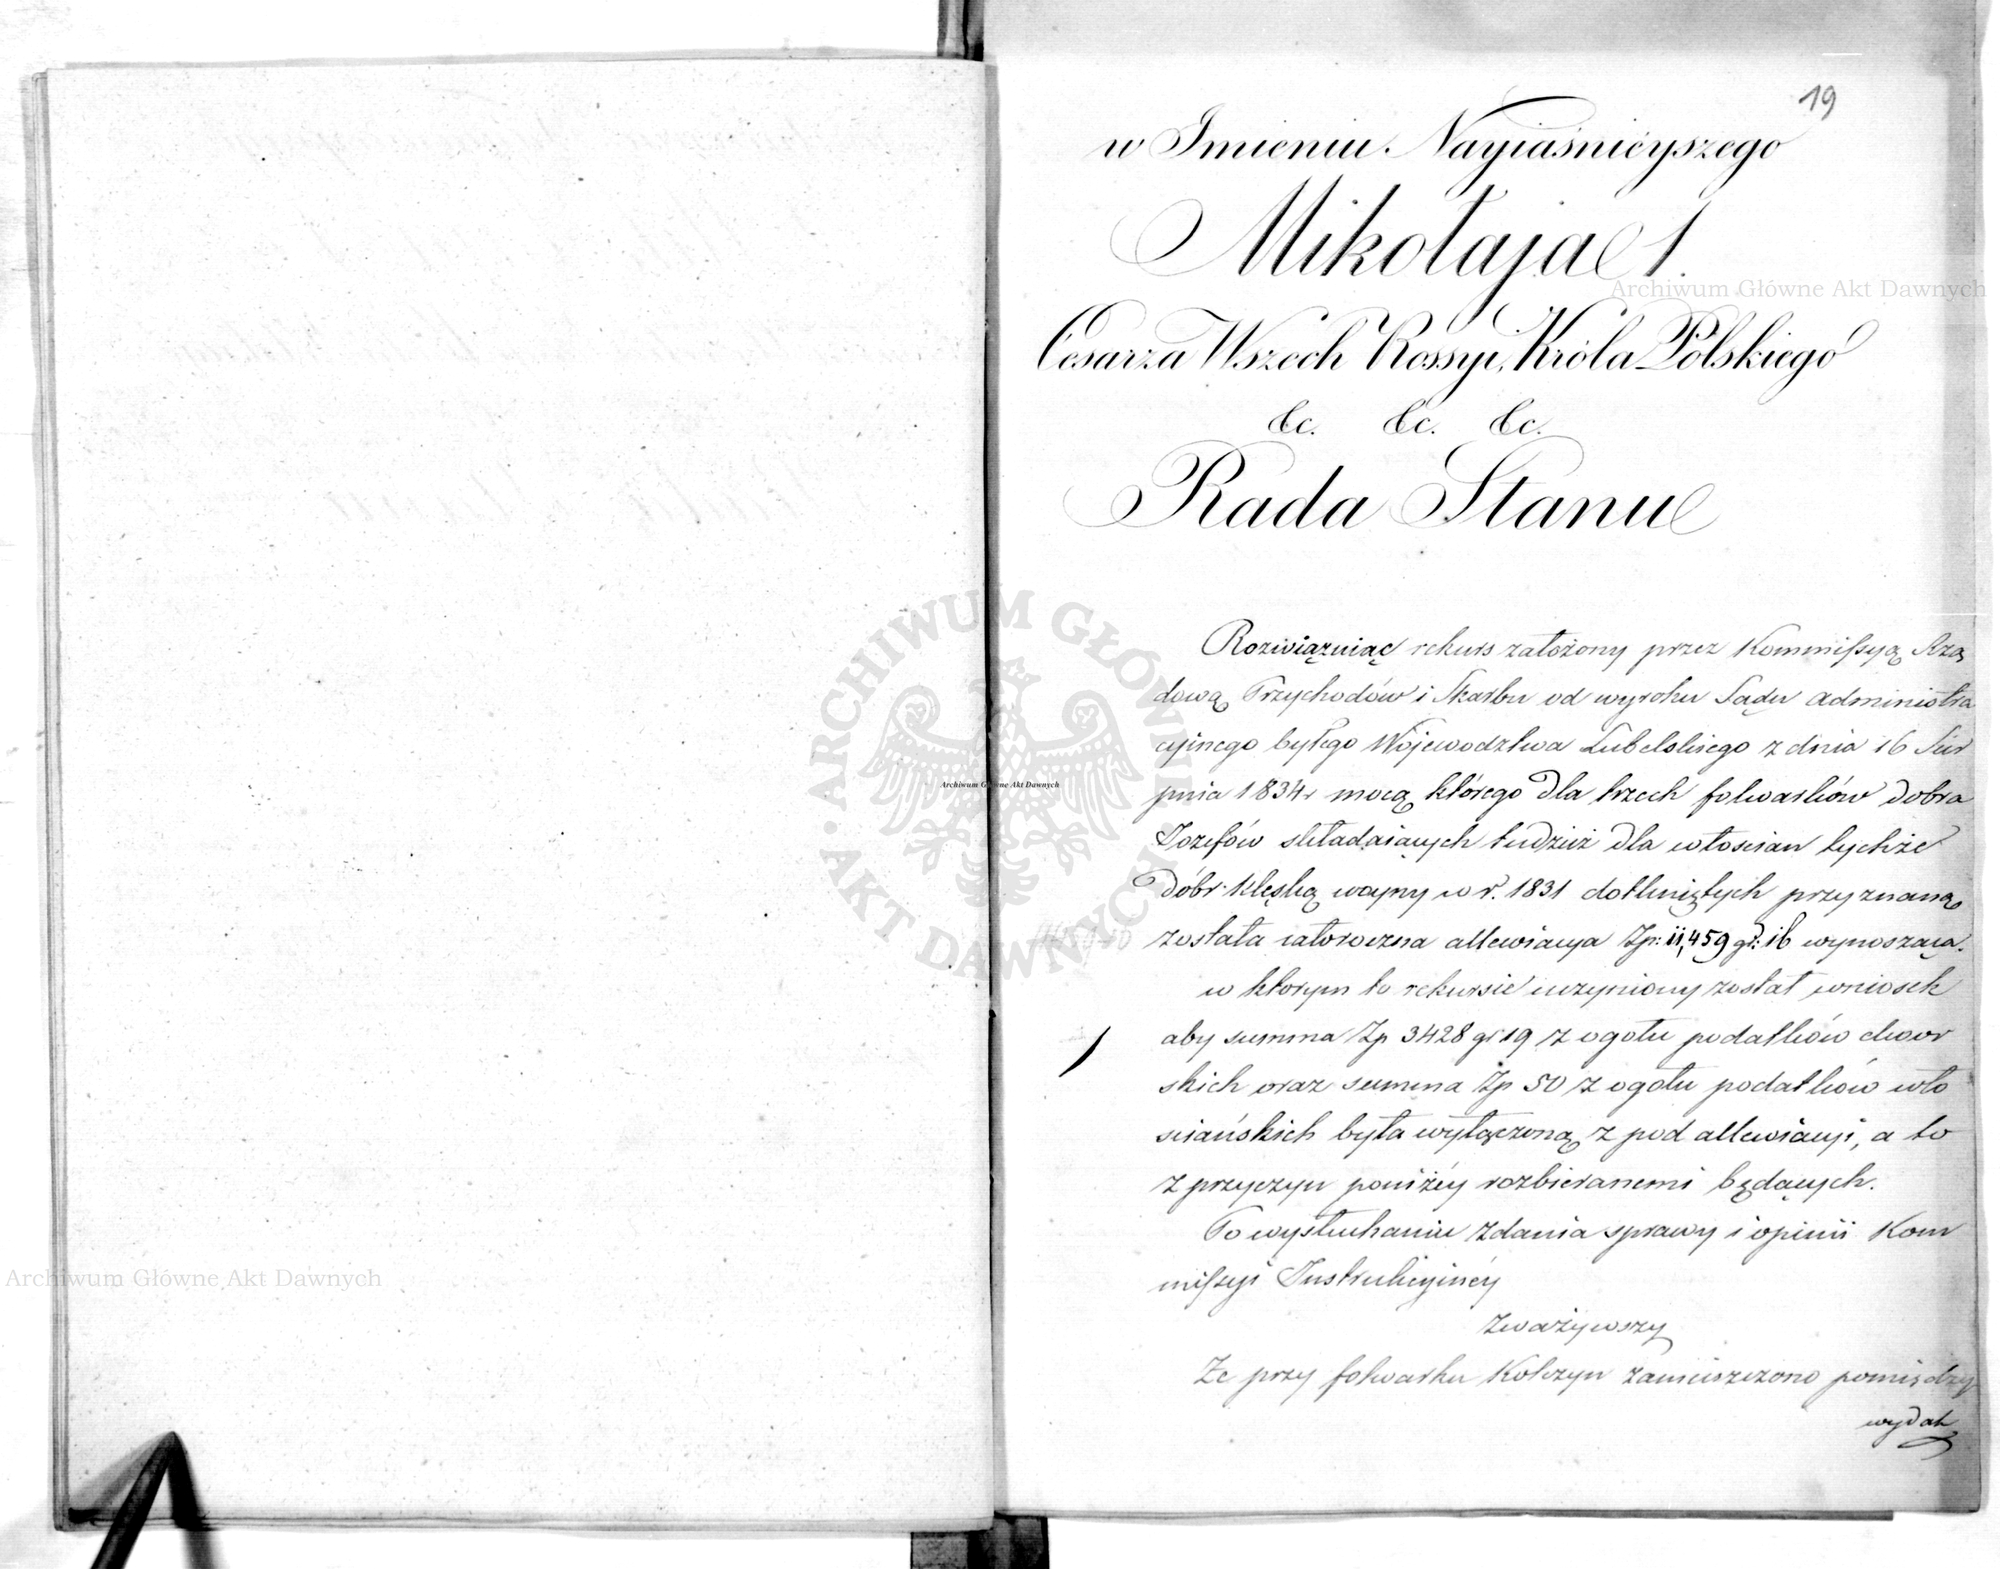 19
w Imieniu Nayiaśnieyszego
Mikołaja 1.
Cesarza Wszech Rossyi, Króla Polskiego
&c. &c. &c.
Rada Stanu
Rozwiązuiąc rekurs założony przez Kommissyą Rzą
dową Przychodów i Skarbu od wyroku Sądu administra
cyinego byłego Wojewodztwa Lubelskiego z dnia 16 Sier
pnia 1834 r mocą którego dla trzech folwarków dobra
Jozefów składaiących tudzież dla włoscian tychże
dóbr klęską woyny w r. 1831 dotkniętych przyznaną
została całoroczna allewiacya Zp: 11,459 gr: 16 wynosząca.
w ktorym to rekursie uczyniony został wniosek
aby summa Zp 3428 gr 19 z ogołu podatków dwor
skich oraz summa Zp 50 z ogołu podatków wło
sciańskich była wyłączoną z pod allewiacyi, a to
z przyczyn poniżéy rozbieranemi będących.
Po wysłuchaniu zdania sprawy i opinii Kom
missyi Instrukcyinéy
zważywszy
Że przy folwarku Kolczyn zamieszczono pomiędzy
wydat
ARCHIWUM GŁÓWNE AKT DAWNYCH
Archiwum Główne Akt Dawnych
Archiwum Główne Akt Dawnych
Archiwum Główne Akt Dawnych